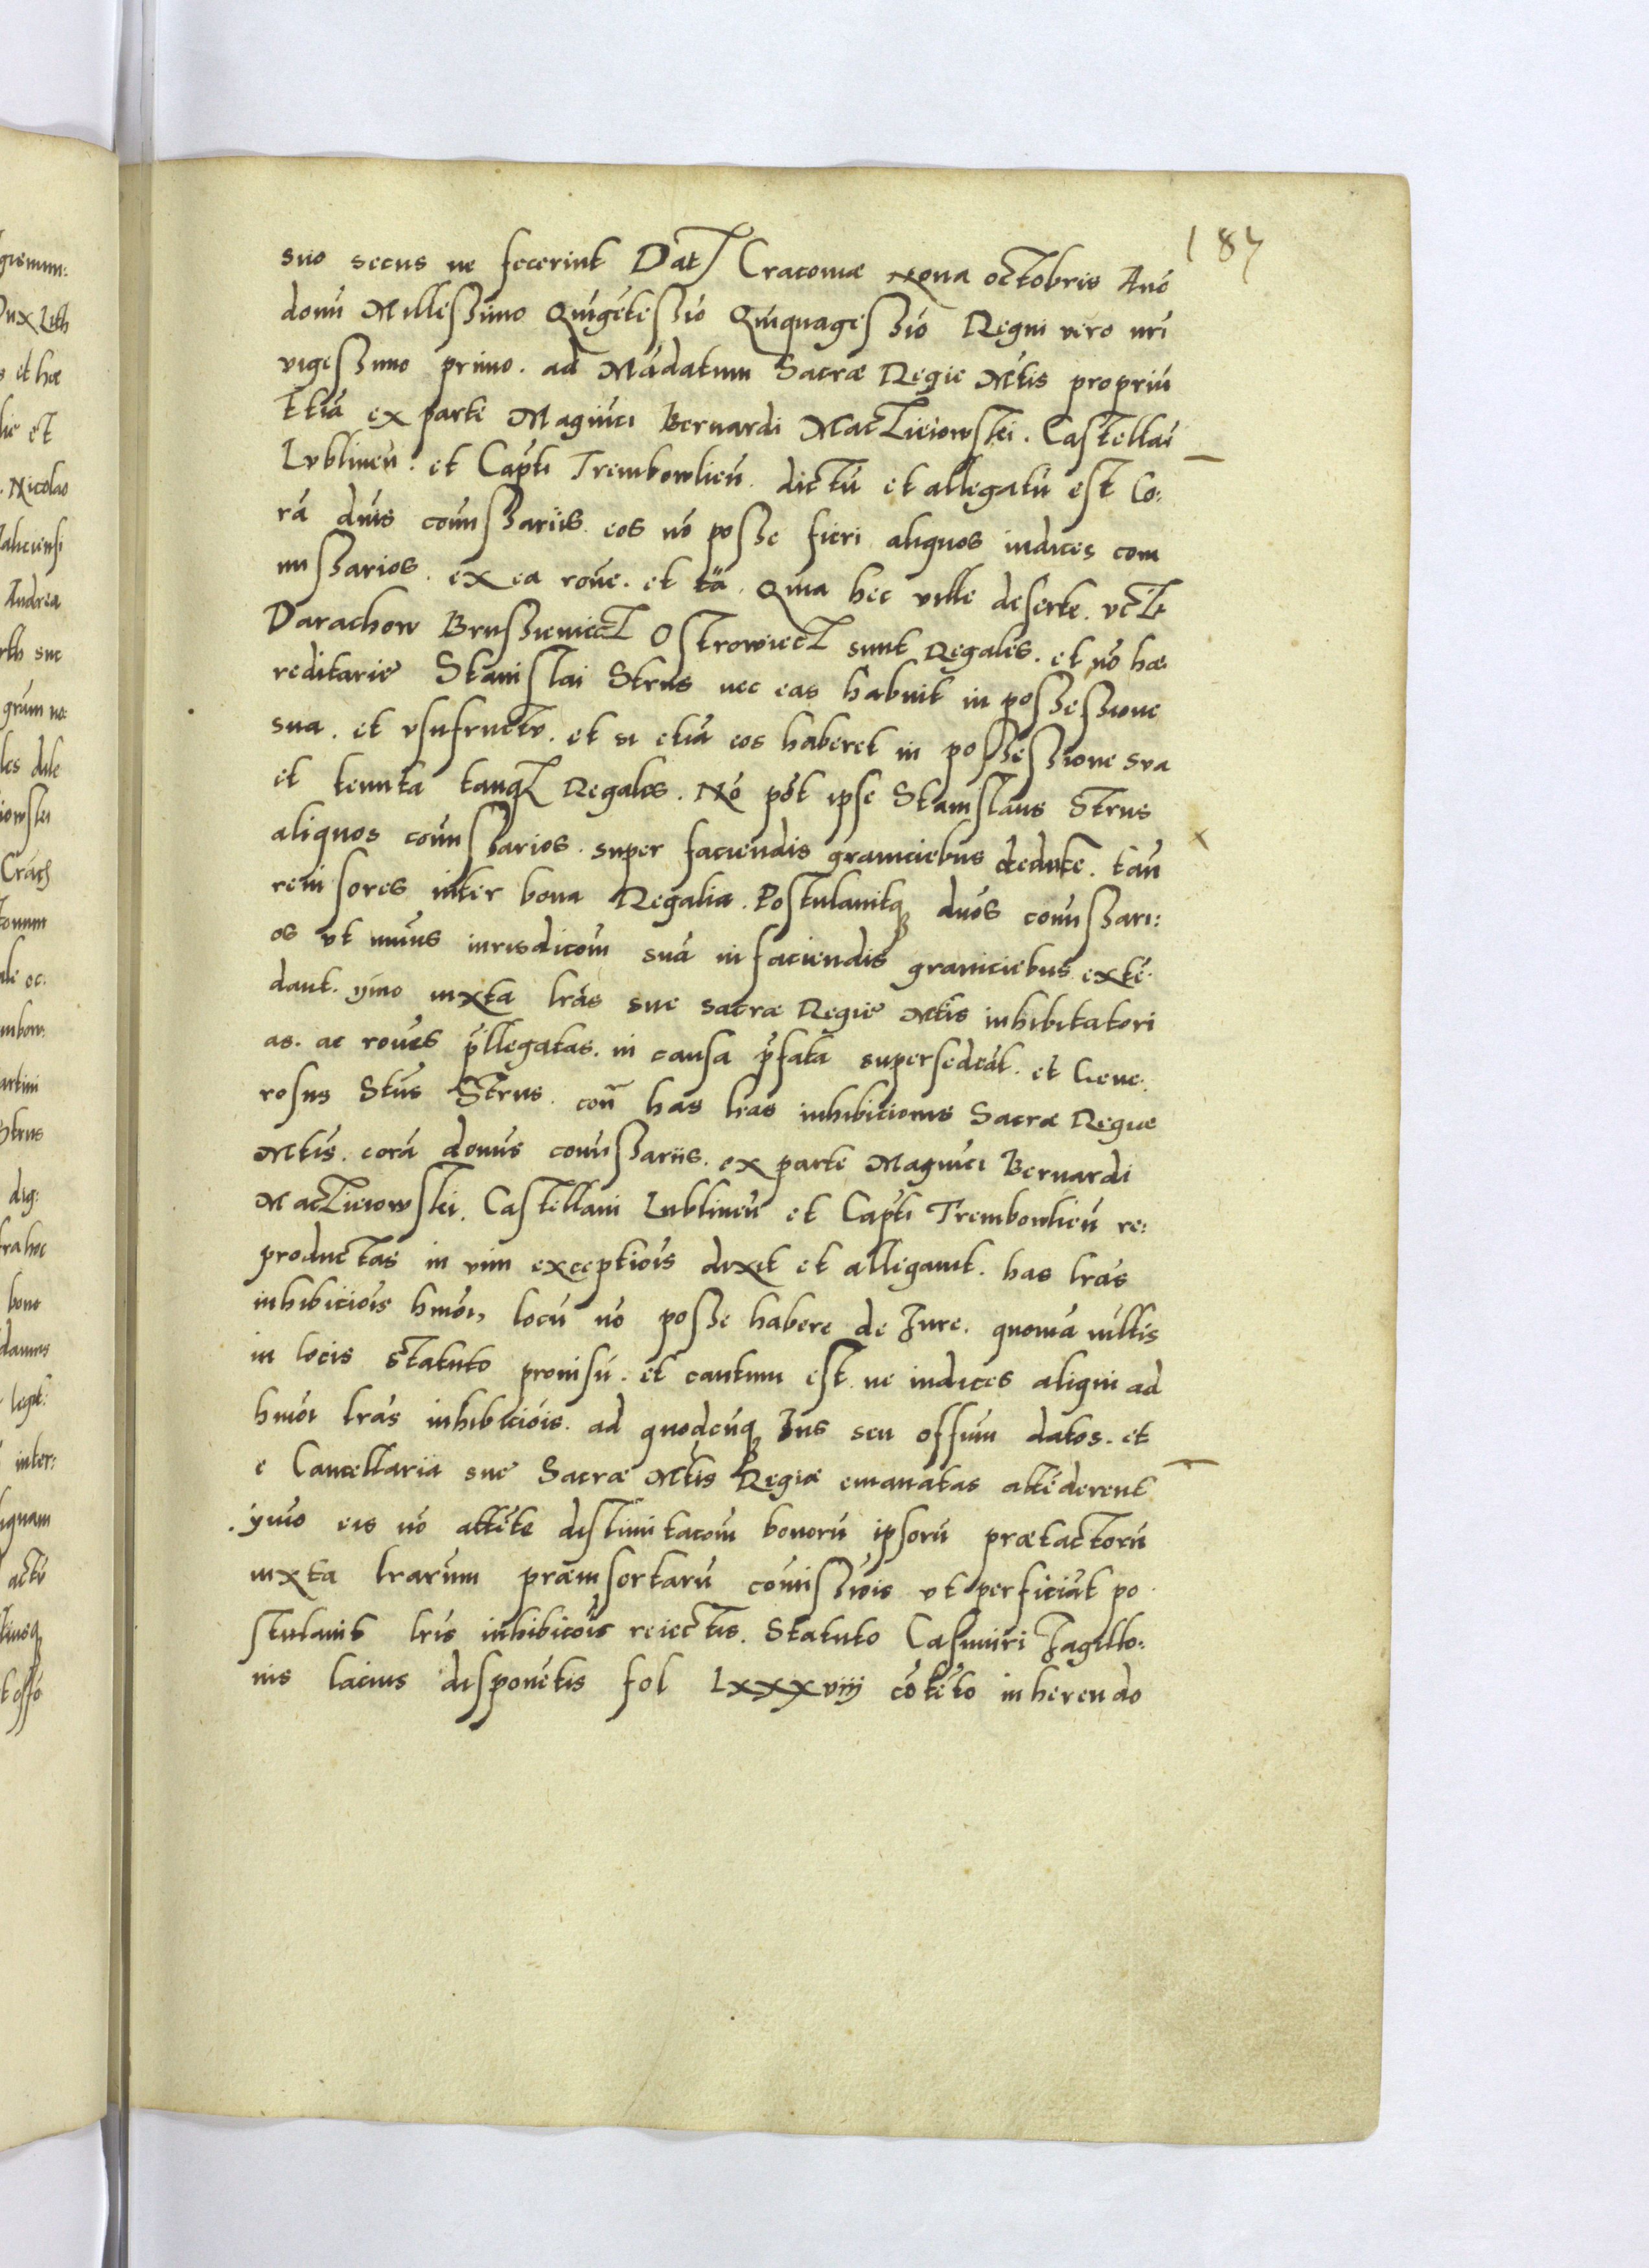 187
suo secus ne fecerint Dat Cracoviæ Nona octobris Anō
domī Millessimo Quīgētessiō Quīquagessiō Regni vero nrī
vigessimo primo. ad Mādatum Sacræ Regie Mtis propriū
Etiā ex parte Magnīci Bernardi Maczieiowski. Castellāi
Lublineñ. et Capti Trembowlieñ. dictū et allegatū est Co:
rā dnīs comīssariis. eos nō posse fieri aliquos iudices com
missarios. ex ea ronē. et cā. Quia hec ville deserte. vcz
Darachow Brussieniecz Ostrowiecz sunt Regales. et nō hæ
reditarie Stanislai Strus nec eas habuit in possessione
sua. et usufructu. et si etiā eos haberet in possessione sua
et tenuta tanq Regales. Nō pōt ipse Stanislaus Strus
aliquos comīssarios. super faciendis graniciebus deducte. tan
revisores inter bona Regalia. Postulavitq dnōs comīssari:
os ut minus iurisdicoīm suā in faciendis graniciebus extē
dant. ymo iuxta lrās sue sacræ Regie Mtis inhibitatori
as. ac ronēs pllegatas. in causa pfata supersedeāt. et Gene
rosus Stūs Strus. coñ has lras inhibicionis Sacræ Regiæ
Mtis. corā domīs comissariis. ex parte Magnīci Bernardi
Macziejowski. Castellani Lublineñ et Capti Trembowlieñ re:
productas in vim exceptioīs dixit et allegavit. has lrās
inhibicioīs hmōi, locū nō posse habere de Jure. quoniā nūllis
in locis statuto provisū. et cautum est. ne iudices aliqui ad
hmōi lrās inhibicioīs. ad quodcūq Jus seu offūm datos. et
e Cancellaria sue Sacræ Mtis Regiæ emanatas attēderent
ymo eis nō attēte distinitacoīm bonorū ipsorū prætactorū
iuxta lrarum præinsertarū comissioīs ut perficiāt po
stulavit lris inhibicoīs reiectis. Statuto Casimiri Jagiello:
nis lacius disponētis fol Lxxxviij cōtēto inherendo